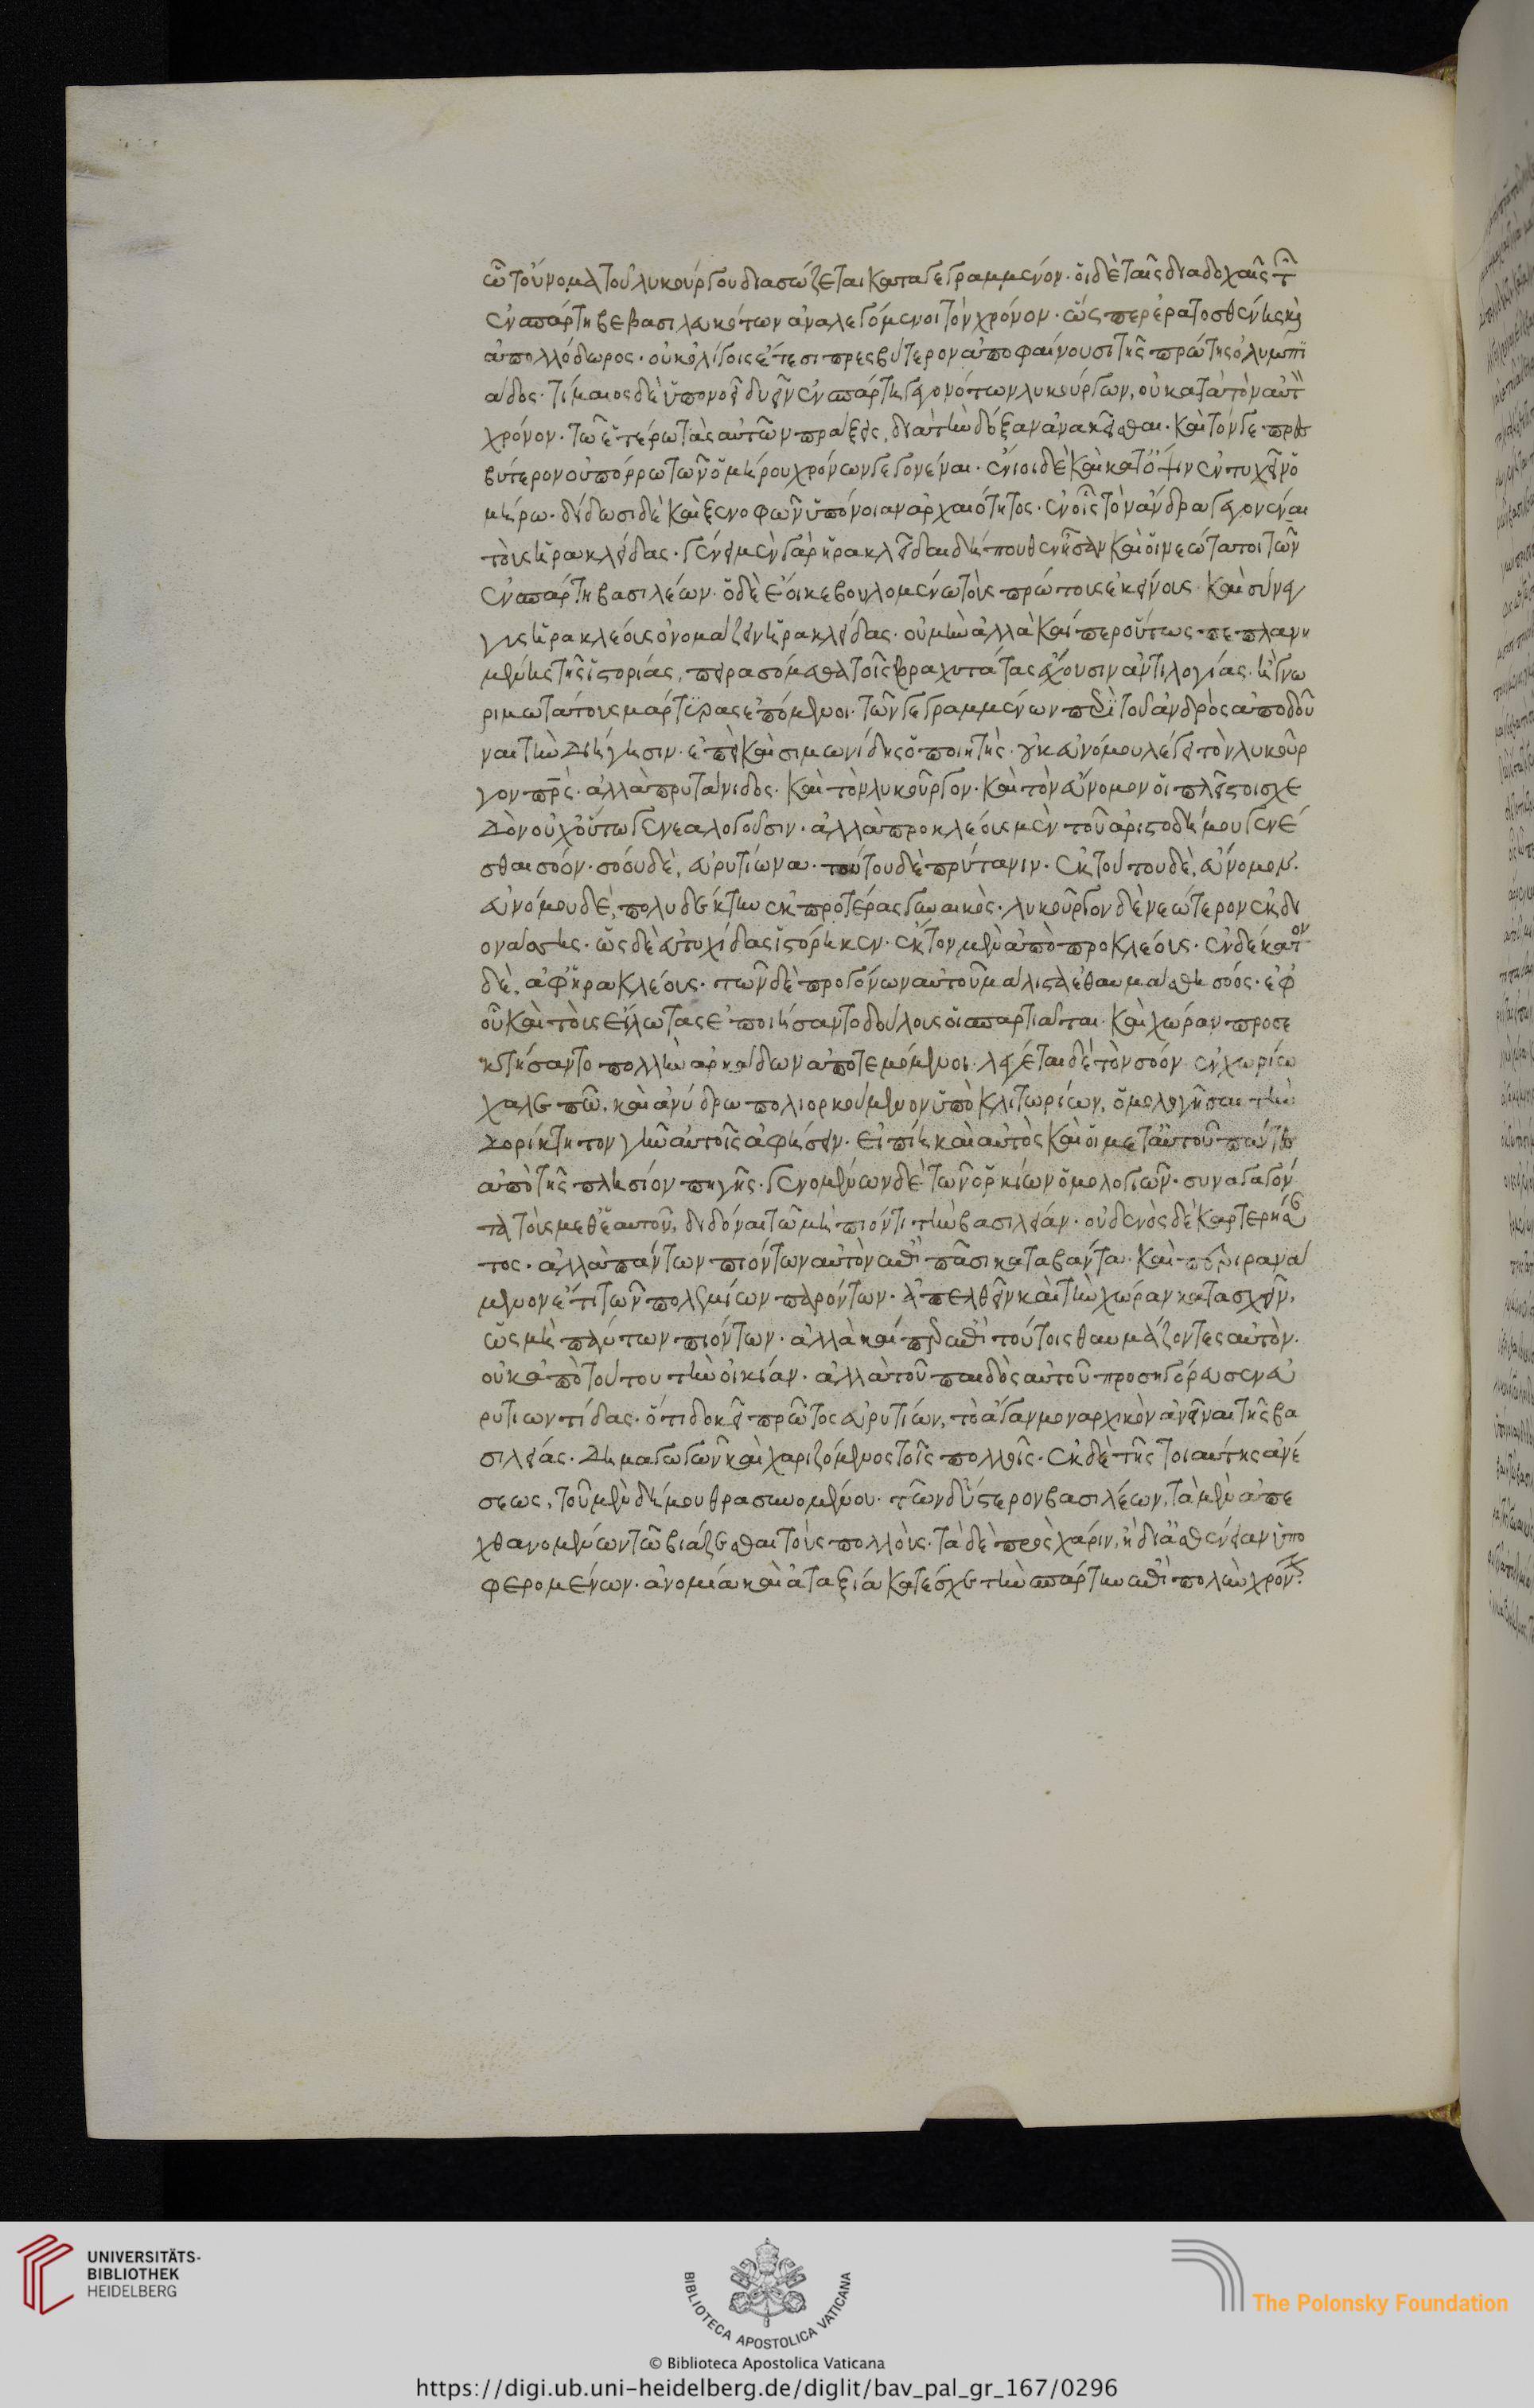 ὧ τοὔνομα τοῦ λυκούργου διασώζεται καταγεγραμμένον· οἱ δὲ ταῖς διαδοχαῖς τῶν
ἐν σπάρτη βεβασιλευκότων ἀναλεγόμενοι τὸν χρόνον· ὥς περ ἐρατοσθένης καὶ
ἀπολλόδωρος· οὐκ ὀλίγοις ἔτεσι πρεσβύτερον ἀποφαίνουσι τῆς πρώτης ὀλυμπι
άδος· τίμαιος δὲ ὑπονοεῖ δυεῖν ἐν σπάρτη γεγονότων λυκούργων, οὐ κατὰ τὸν αὐτὸν
χρόνον· τῶ ἑτέρω τὰς αὐτῶν πράξεις, διὰ τὴν δόξαν ἀνακεῖσθαι· καὶ τόν γε πρεσ
βύτερον οὐ πόρρω τῶν ὁμήρου χρόνων γεγονέναι· ἔνιοι δὲ καὶ κατ' ὄψιν ἐντυχεῖν ὁ
μήρω· δίδωσι δὲ καὶ ξενοφῶν ὑπόνοιαν ἀρχαιότητος· ἐν οἷς τὸν ἄνδρα γεγονέναι
τοὺς ἡρακλείδας· γένει μὲν γὰρ ἡρακλεῖδαι δήπουθεν ἦσαν καὶ οἱ νεώτατοι τῶν
ἐν σπάρτη βασιλέων· ὁ δὲ ἔοικε βουλομένω τοὺς πρώτους ἐκείνους· καὶ σύνεγ
γυς ἡρακλέους ὀνομάζειν ἡρακλείδας· οὐ μὴν ἀλλὰ καί περ οὕτως πεπλανη
μένης τῆς ἱστορίας, πειρασόμεθα τοῖς βραχυτάτας ἔχουσιν ἀντιλογίας· ἢ γνω
ριμωτάτους μάρτυρας ἑπόμενοι· τῶν γεγραμμένων περὶ τοῦ ἀνδρὸς ἀποδοῦ
ναι τὴν διήγησιν· ἐπεὶ καὶ σιμωνίδης ὁ ποιητὴς· οὐκ εὐνόμου λέγει τὸν λυκοῦρ
γον πατρὸς· ἀλλὰ πρυτάνιδος· καὶ τὸν λυκοῦργον· καὶ τὸν εὔνομον οἱ πλεῖστοι σχε
δὸν οὐχ οὕτω γενεαλογοῦσιν· ἀλλὰ προκλέους μὲν τοῦ ἀριστοδήμου γενέ
σθαι σόον· σόου δὲ, εὐρυτίωνα· τούτου δὲ πρύτανιν· ἐκ τούτου δὲ, εὔνομον·
εὐνόμου δὲ, πολυδέκτην ἐκ προτέρας γυναικὸς· λυκοῦργον δὲ νεώτερον ἐκ δι
ονάσσης· ὡς δὲ εὐτυχίδας ἱστόρηκεν· ἕκτον μὲν ἀπὸ προκλέους· ἑνδέκατον
δὲ, ἀφ' ἡρακλέους· τῶν δὲ προγόνων αὐτοῦ μάλιστα ἐθαυμάσθη σόος· ἐφ'
οὗ καὶ τοὺς εἵλωτας ἐποιήσαντο δούλους οἱ σπαρτιάται· καὶ χώραν προσε
κτήσαντο πολλὴν ἀρκάδων ἀποτεμόμενοι· λέγεται δὲ τὸν σόον ἐν χωρίω
χαλεπῶ, καὶ ἀνύδρω πολιορκούμενον ὑπὸ κλιτωρίων, ὁμολογῆσαι τὴν
δορίκτητον γῆν αὐτοῖς ἀφήσειν· εἰ πίη καὶ αὐτὸς καὶ οἱ μετ' αὐτοῦ πάντες
ἀπὸ τῆς πλησίον πηγῆς· γενομένων δὲ τῶν ὁρκίων ὁμολογιῶν· συναγαγόν
τα τοὺς μεθ' ἑαυτοῦ, διδόναι τῶ μὴ πιόντι τὴν βασιλείαν· οὐδενὸς δὲ καρτερήσαν
τος· ἀλλὰ πάντων πιόντων αὐτὸν ἐπὶ πᾶσι καταβάντα· καὶ περιρανά
μενον ἔτι τῶν πολεμίων παρόντων· ἀπελθεῖν καὶ τὴν χώραν κατασχεῖν,
ὡς μὴ πάντων πιόντων· ἀλλὰ καί περ ἐπὶ τούτοις θαυμάζοντες αὐτὸν·
οὐκ ἀπὸ τούτου τὴν οἰκίαν· ἀλλὰ τοῦ παιδὸς αὐτοῦ προσηγόρευσαν εὐ
ρυτιωντίδας· ὅτι δοκεῖ πρῶτος εὐρυτίων, τὸ ἄγαν μοναρχικὸν ἀνεῖναι τῆς βα
σιλείας· δημαγωγῶν καὶ χαριζόμενος τοῖς πολλοῖς· ἐκ δὲ τῆς τοιαύτης ἀνέ
σεως, τοῦ μὲν δήμου θρασυνομένου· τῶν δ' ὕστερον βασιλέων, τὰ μὲν ἀπε
χθανομένων τῶ βιάζεσθαι τοὺς πολλοὺς· τὰ δὲ πρὸς χάριν, ἢ δι' ἀσθένειαν ὑπο
φερομένων· ἀνομία καὶ ἀταξία κατέσχε τὴν σπάρτην ἐπὶ πολὺν χρόνον·
UNIVERSITÄTS-
BIBLIOTHEK
HEIDELBERG
BIBLIOTECA APOSTOLICA VATICANA
The Polonsky Foundation
© Biblioteca Apostolica Vaticana
https://digi.ub.uni-heidelberg.de/diglit/bav_pal_gr_167/0296